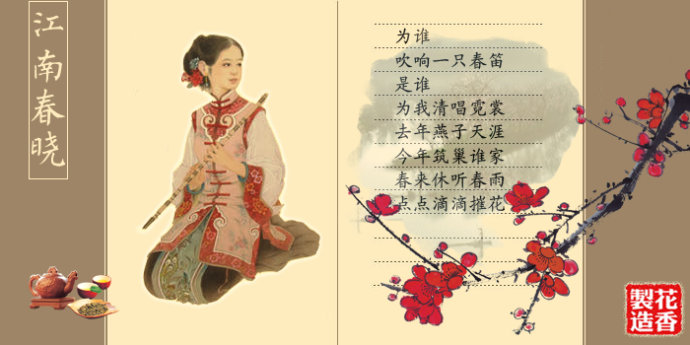 江南春晓
为谁
吹响一只春笛
是谁
为我清唱霓裳
去年燕子天涯
今年筑巢谁家
春来休听春雨
点点滴滴摧花
花香
製造